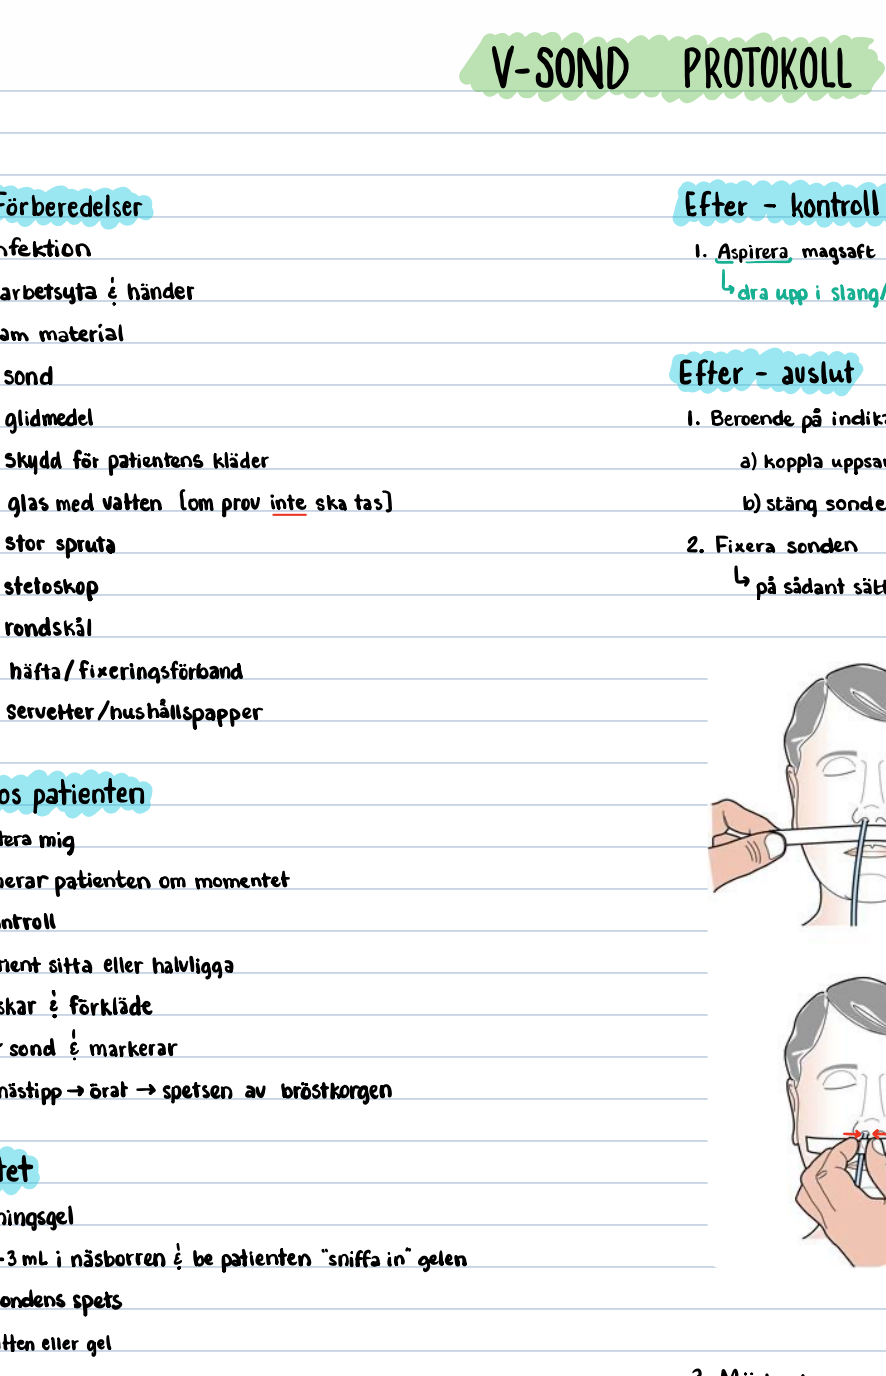 V-SOND PROTOKOLL
Förberedelser
nfektion
arbetsyta & händer
am material
sond
glidmedel
skydd för patientens kläder
glas med vatten [om prov inte ska tas]
stor spruta
stetoskop
rondskål
häfta/fixeringsförband
servetter/hushållspapper
os patienten
tera mig
nerar patienten om momentet
ntroll
nent sitta eller halvligga
skar & förkläde
r sond & markerar
nästipp → örat → spetsen av bröstkorgen
tet
ningsgel
-3 mL i näsborren & be patienten "sniffa in" gelen
ondens spets
tten eller gel
Efter - kontroll
1. Aspirera magsaft
↳ dra upp i slang/
Efter - avslut
1. Beroende på indika
a) koppla uppsa
b) stäng sonde
2. Fixera sonden
↳ på sådant sätt